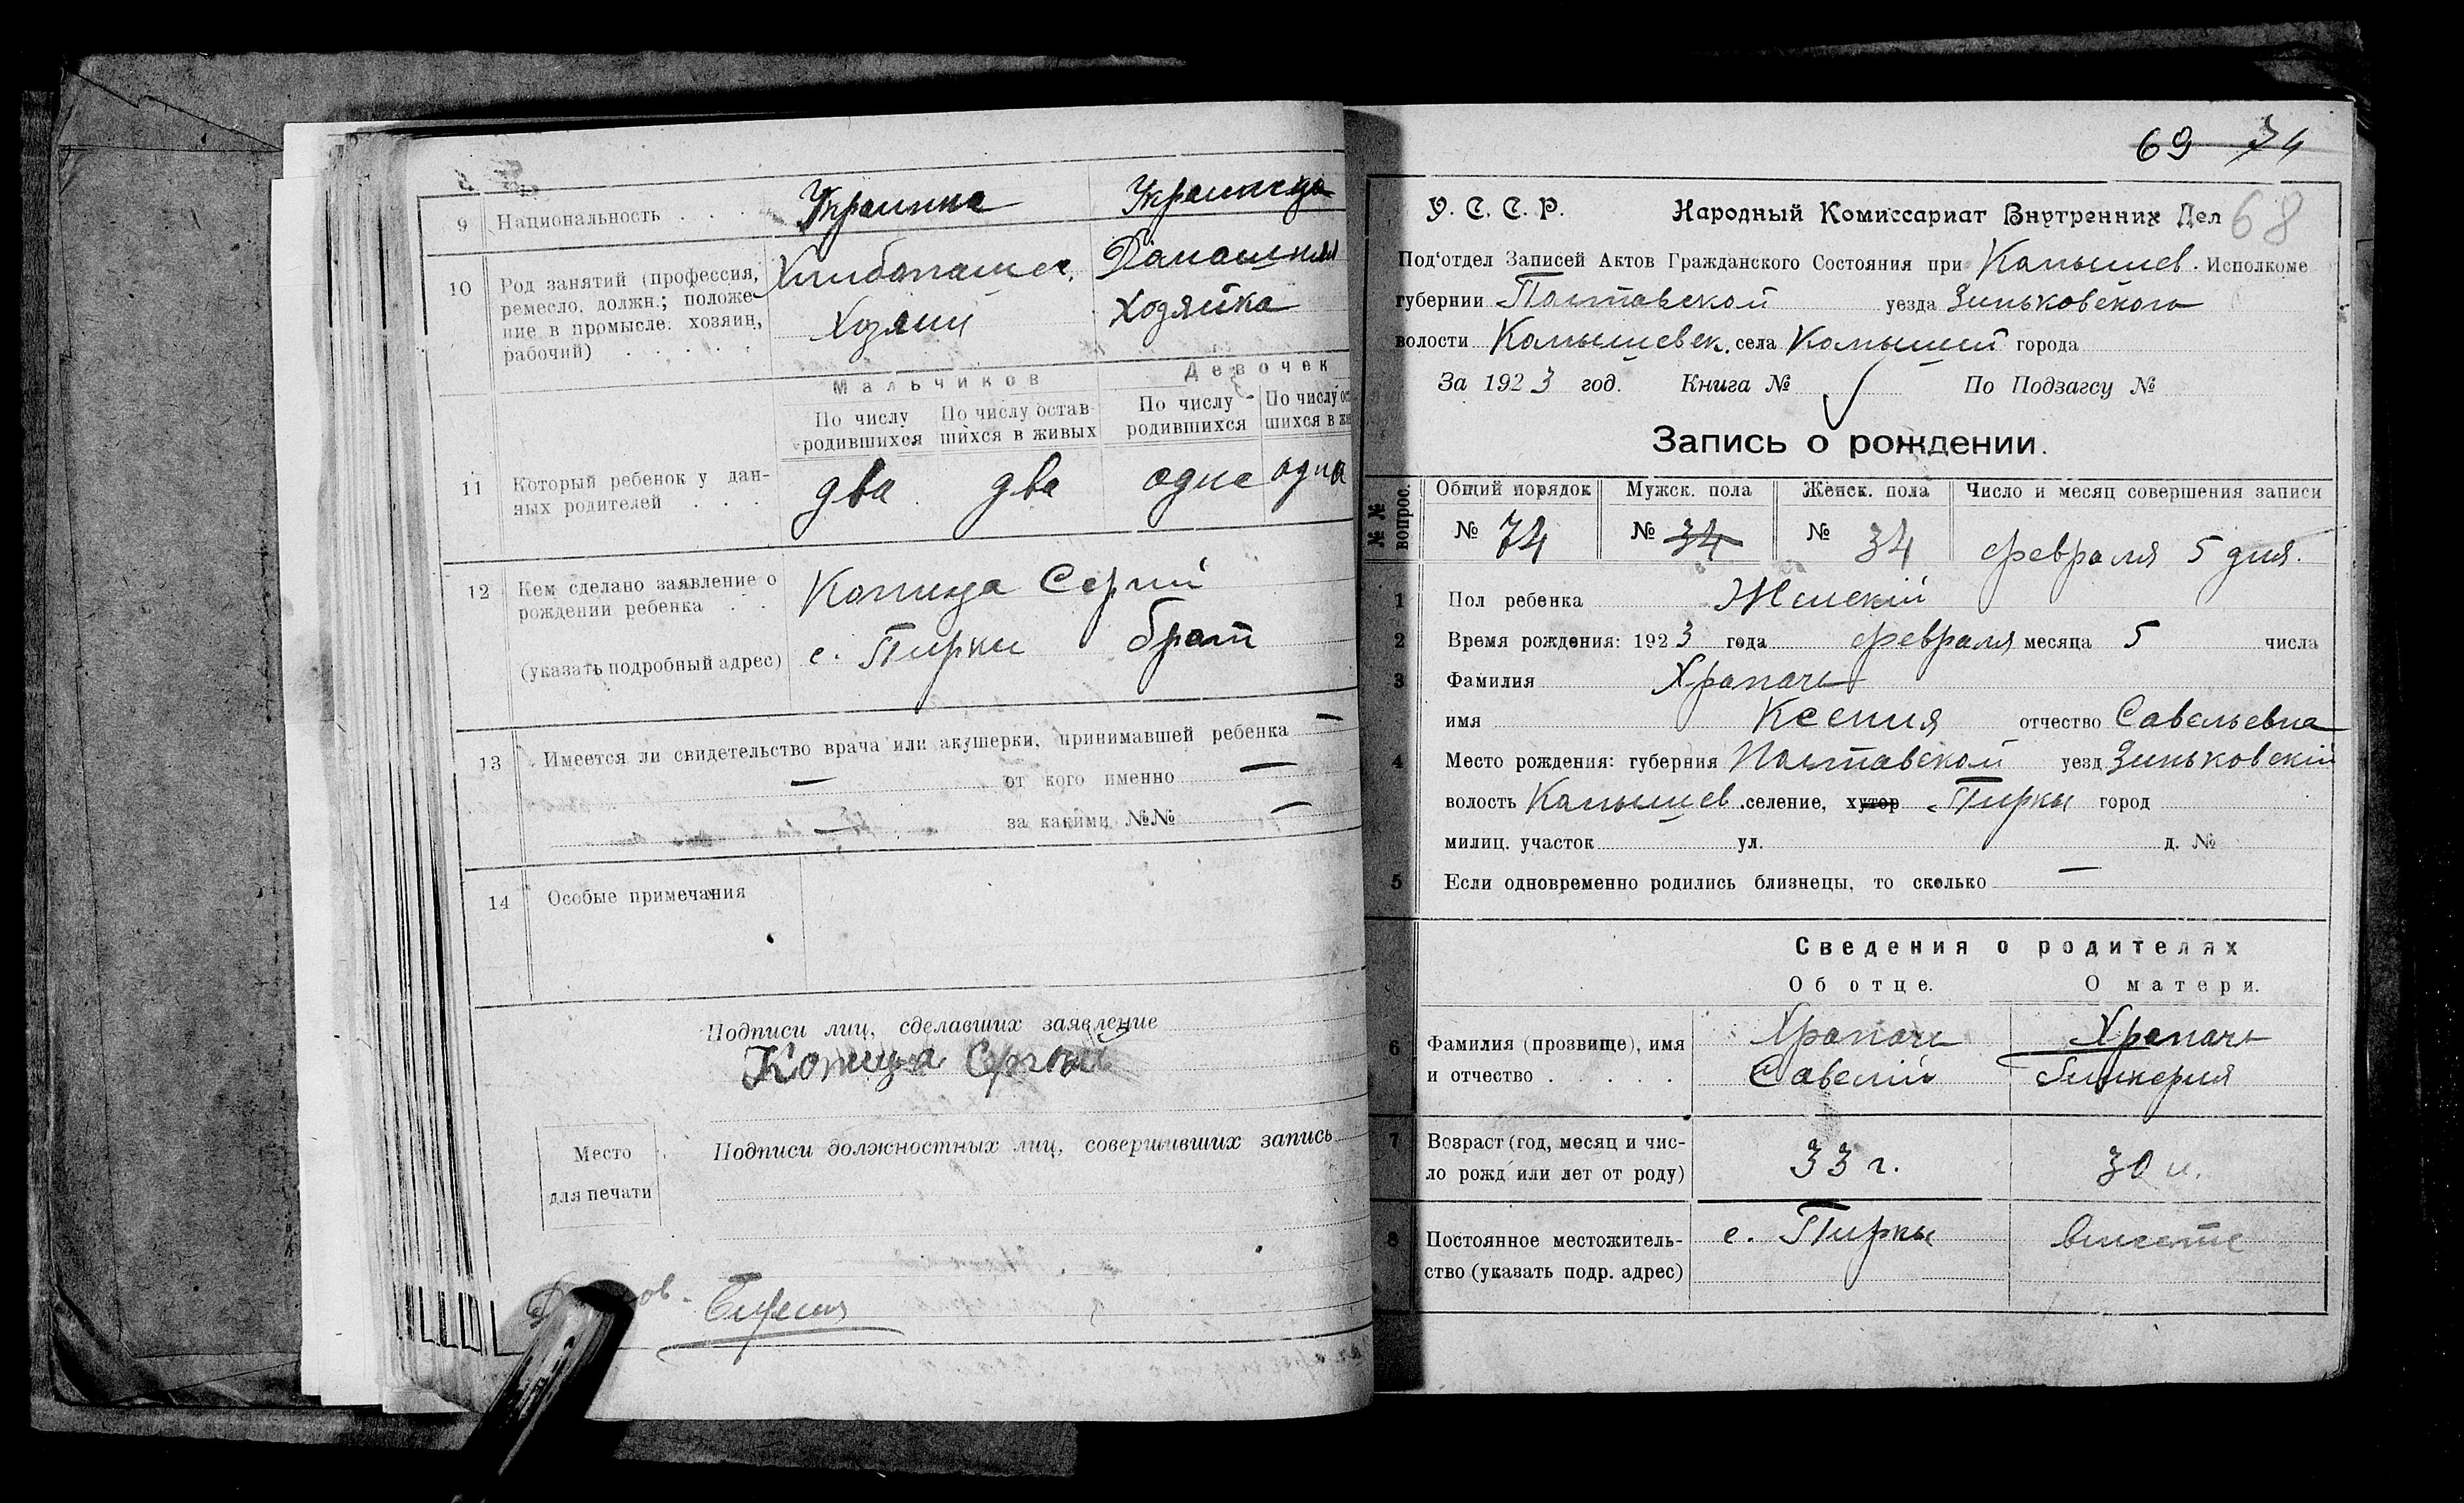 9 Национальность . . . Украинца Украинца
10 Род занятий (профессия, ремесло, должн.; положе-
ние в промысле: хозяин,
рабочий) . . . . .
Хозяин
Домашняя
Хозяйка
Мальчиков Девочек
По числу родившихся По числу остав-шихся в живых По числу родившихся По числу ос шихся в жи
11 Который ребенок у дан-
ных родителей . . .
два два одна одна
12 Кем сделано заявление о
рождении ребенка . .
(указать подробный адрес)
Копица Сергий
с. Пирки брат
13 Имеется ли свидетельство врача или акушерки, принимавшей ребенка —
— от кого именно —
— за какими №№ —
14 Особые примечания
Подписи лиц, сделавших заявление
Копица
Место
для печати
Подписи должностных лиц, совершивших запись
69 74
68
У. С. С. Р. Народный Комиссариат Внутренних Дел
Под'отдел Записей Актов Гражданского Состояния при Камышев. Исполкоме
губернии Полтавской уезда Зиньковского
волости Камышевск. села Камыши города
За 1923 год. Книга № По Подзагсу №
Запись о рождении.
№ № вопрос.
Общий порядок Мужск. пола Женск. пола Число и месяц совершения записи
№ 74 № 34 № 34 февраля 5 дня.
1 Пол ребенка Женский
2 Время рождения: 1923 года февраля месяца 5 числа
3 Фамилия Храпачь
имя Ксения отчество Савельевна
4 Место рождения: губерния Полтавской уезд Зиньковский
волость Камышев. селение, хутор Пирки город
милиц. участок ул. д. №
5 Если одновременно родились близнецы, то сколько —
Сведения о родителях
Об отце. О матери.
6 Фамилия (прозвище), имя
и отчество . . . . .
Храпачь Храпачь
Савелий Гликерия
7 Возраст (год, месяц и чис-
ло рожд или лет от роду)
33 г. 30 л.
8 Постоянное местожитель-
ство (указать подр. адрес)
с. Пирки вместе